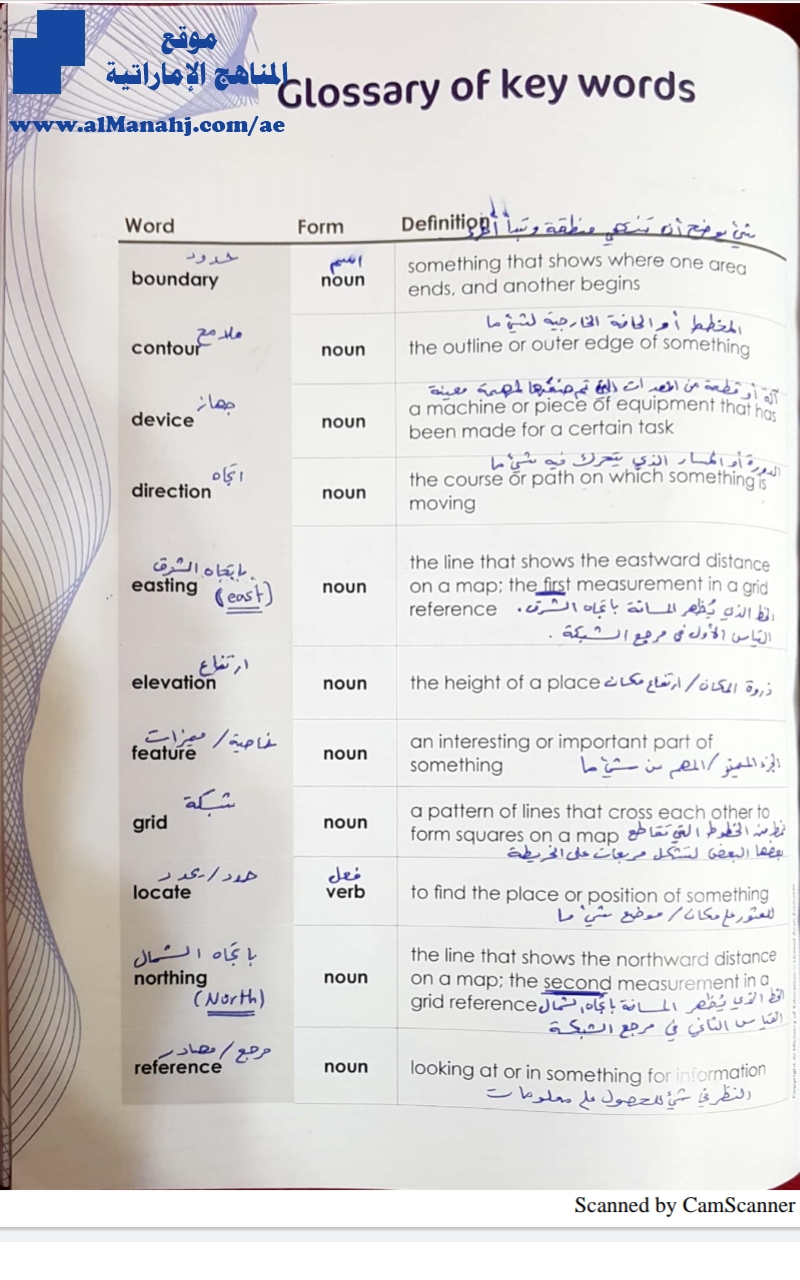 موقع
المناهج الإماراتية
www.alManahj.com/ae
Glossary of key words
Word Form Definition
شيء يوضح أن تنتهي منطقة وتبدأ أخرى
حدود اسم
boundary noun something that shows where one area
ends, and another begins
ملامح المخطط أو الحافة الخارجية لشيء ما
contour noun the outline or outer edge of something
جهاز آلة أو قطعة من المعدات التي تم صنعها لمهمة معينة
device noun a machine or piece of equipment that has
been made for a certain task
اتجاه الدورة أو المسار الذي يتحرك فيه شيء ما
direction noun the course or path on which something is
moving
باتجاه الشرق the line that shows the eastward distance
easting noun on a map; the first measurement in a grid
(east) reference الخط الذي يُظهر المسافة باتجاه الشرق.
القياس الأول في مرجع الشبكة.
ارتفاع
elevation noun the height of a place ذروة المكان/ارتفاع مكان
خاصية/مميزات an interesting or important part of
feature noun something الجزء المميز/المهم من شيء ما
شبكة a pattern of lines that cross each other to
grid noun form squares on a map نمط من الخطوط التي تقاطع
بعضها البعض لتشكل مربعات على الخريطة
حدد/يحدد فعل
locate verb to find the place or position of something
للعثور على مكان/موضع شيء ما
باتجاه الشمال the line that shows the northward distance
northing noun on a map; the second measurement in a
(North) grid reference الخط الذي يُظهر المسافة باتجاه الشمال
القياس الثاني في مرجع الشبكة
مرجع/مصادر
reference noun looking at or in something for information
النظر في شيء للحصول على معلومات
Scanned by CamScanner